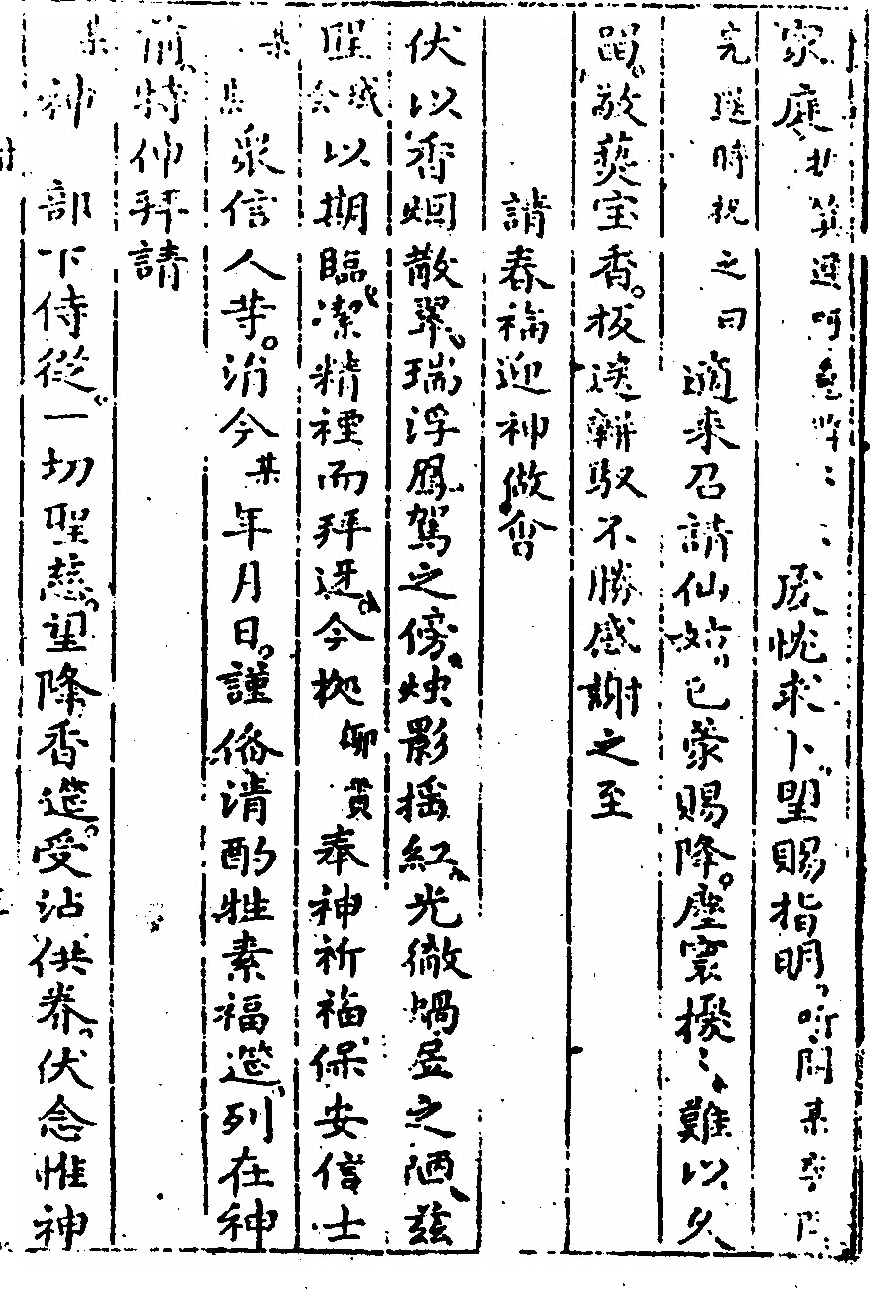 家庭扑箕選呵魚嘩〻〻虔忱求卜，望賜指明，所問某
完送時祝之曰 適來召請仙姑，已蒙賜降。塵寰擾〻，難以久
留。敬爇宝香。板送輧馭不勝感謝之至
請春福迎神做會
伏以香烟散翠，瑞浮鳳駕之傍，燭影搖紅，光徹蝸居之陋，茲
聖誕会以期臨，潔精禋而拜迓，今挽卿貫奉神祈福保安信士
某某衆信人等。涓今某年月日。謹俻清酌牲素福筵，列在神
前，特伸拜請
某神 部下侍從，一切聖慈，望降香筵。受沾供养，伏念惟神